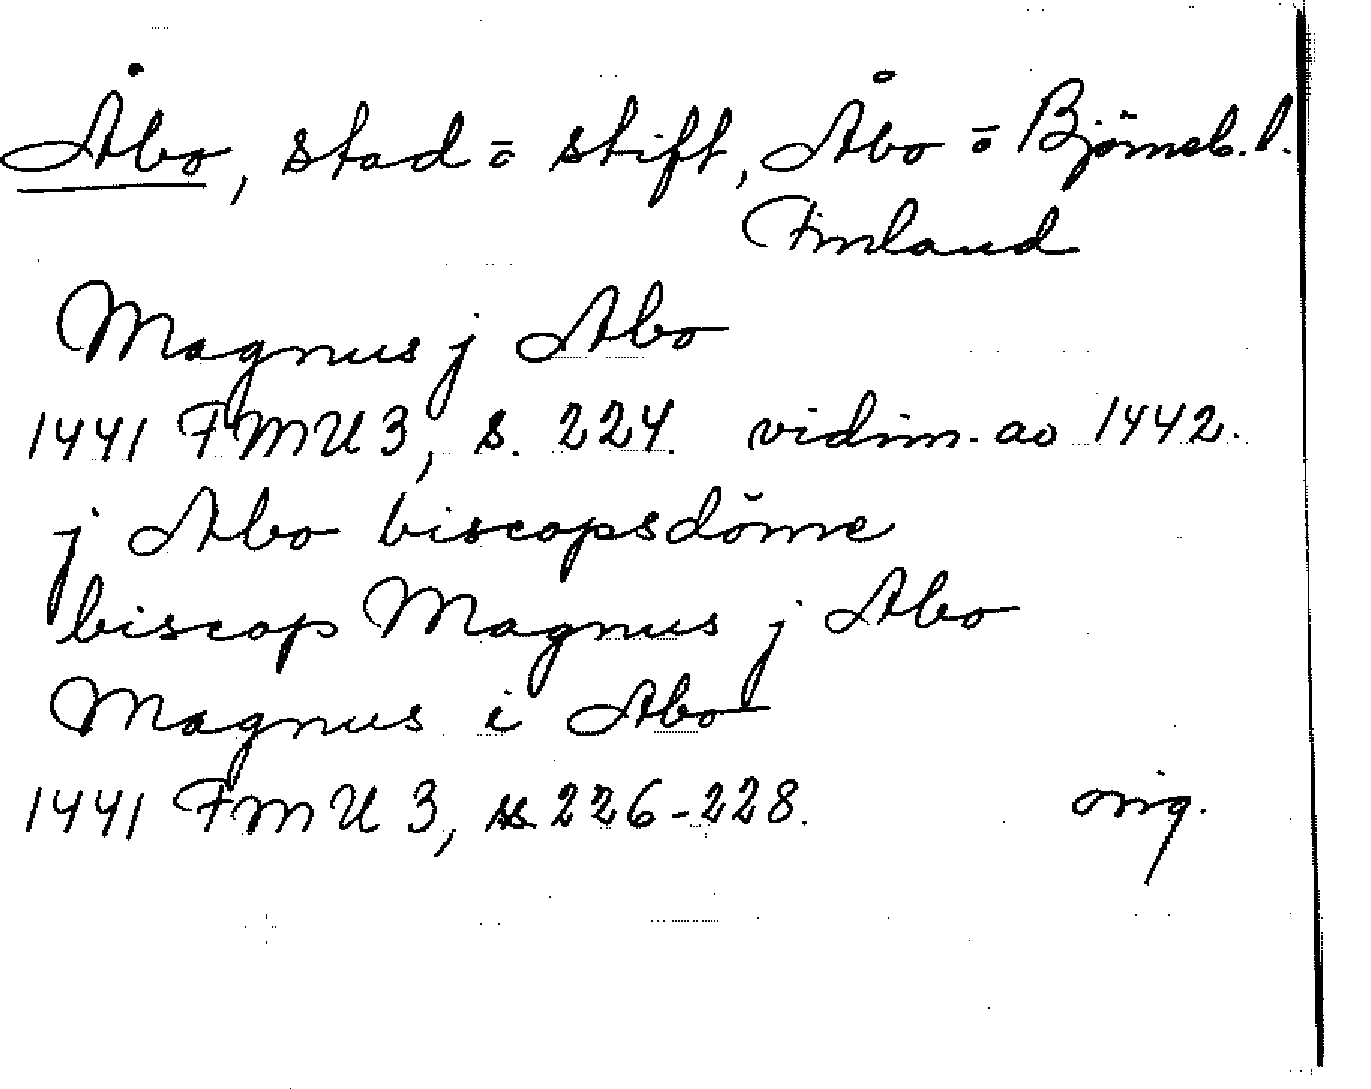 Åbo, stad ō stift, Åbo ō Björneb. l.
Finland
Magnus j Abo
1441 FMU 3, s. 224. vidim. ao 1442.
j Abo biscopsdöme
biscop Magnus j Abo
Magnus i Abo
1441 FMU 3, ss 226-228. orig.